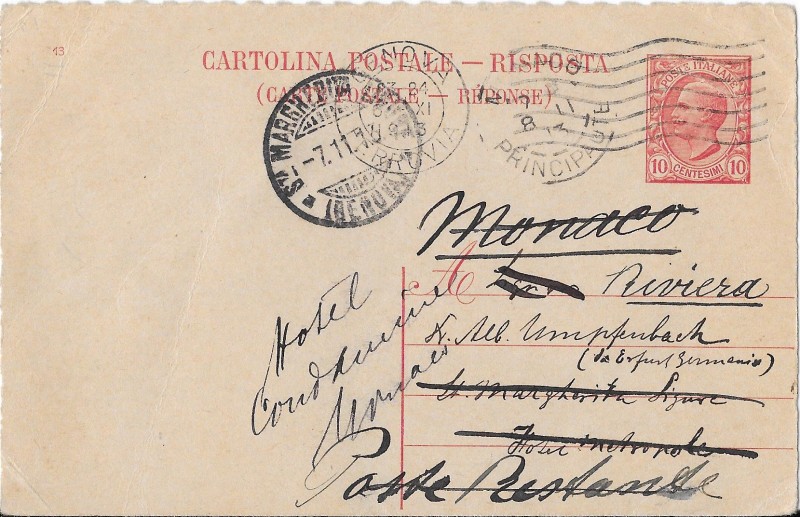 13
CARTOLINA POSTALE — RISPOSTA
(CARTE POSTALE — RÉPONSE)
POSTE ITALIANE
10 CENTESIMI 10
GENOVA
FERROVIA
PRINCIPALE
STA MARGHERITA LIGURE
-7.11.13
(GENOVA)
Monaco
A
Riviera
Alb. Umpfenbach
(da Erfurt Germania)
St. Margherita Ligure
Hotel Metropole
Poste Restande
Hotel
Condamine
Monaco